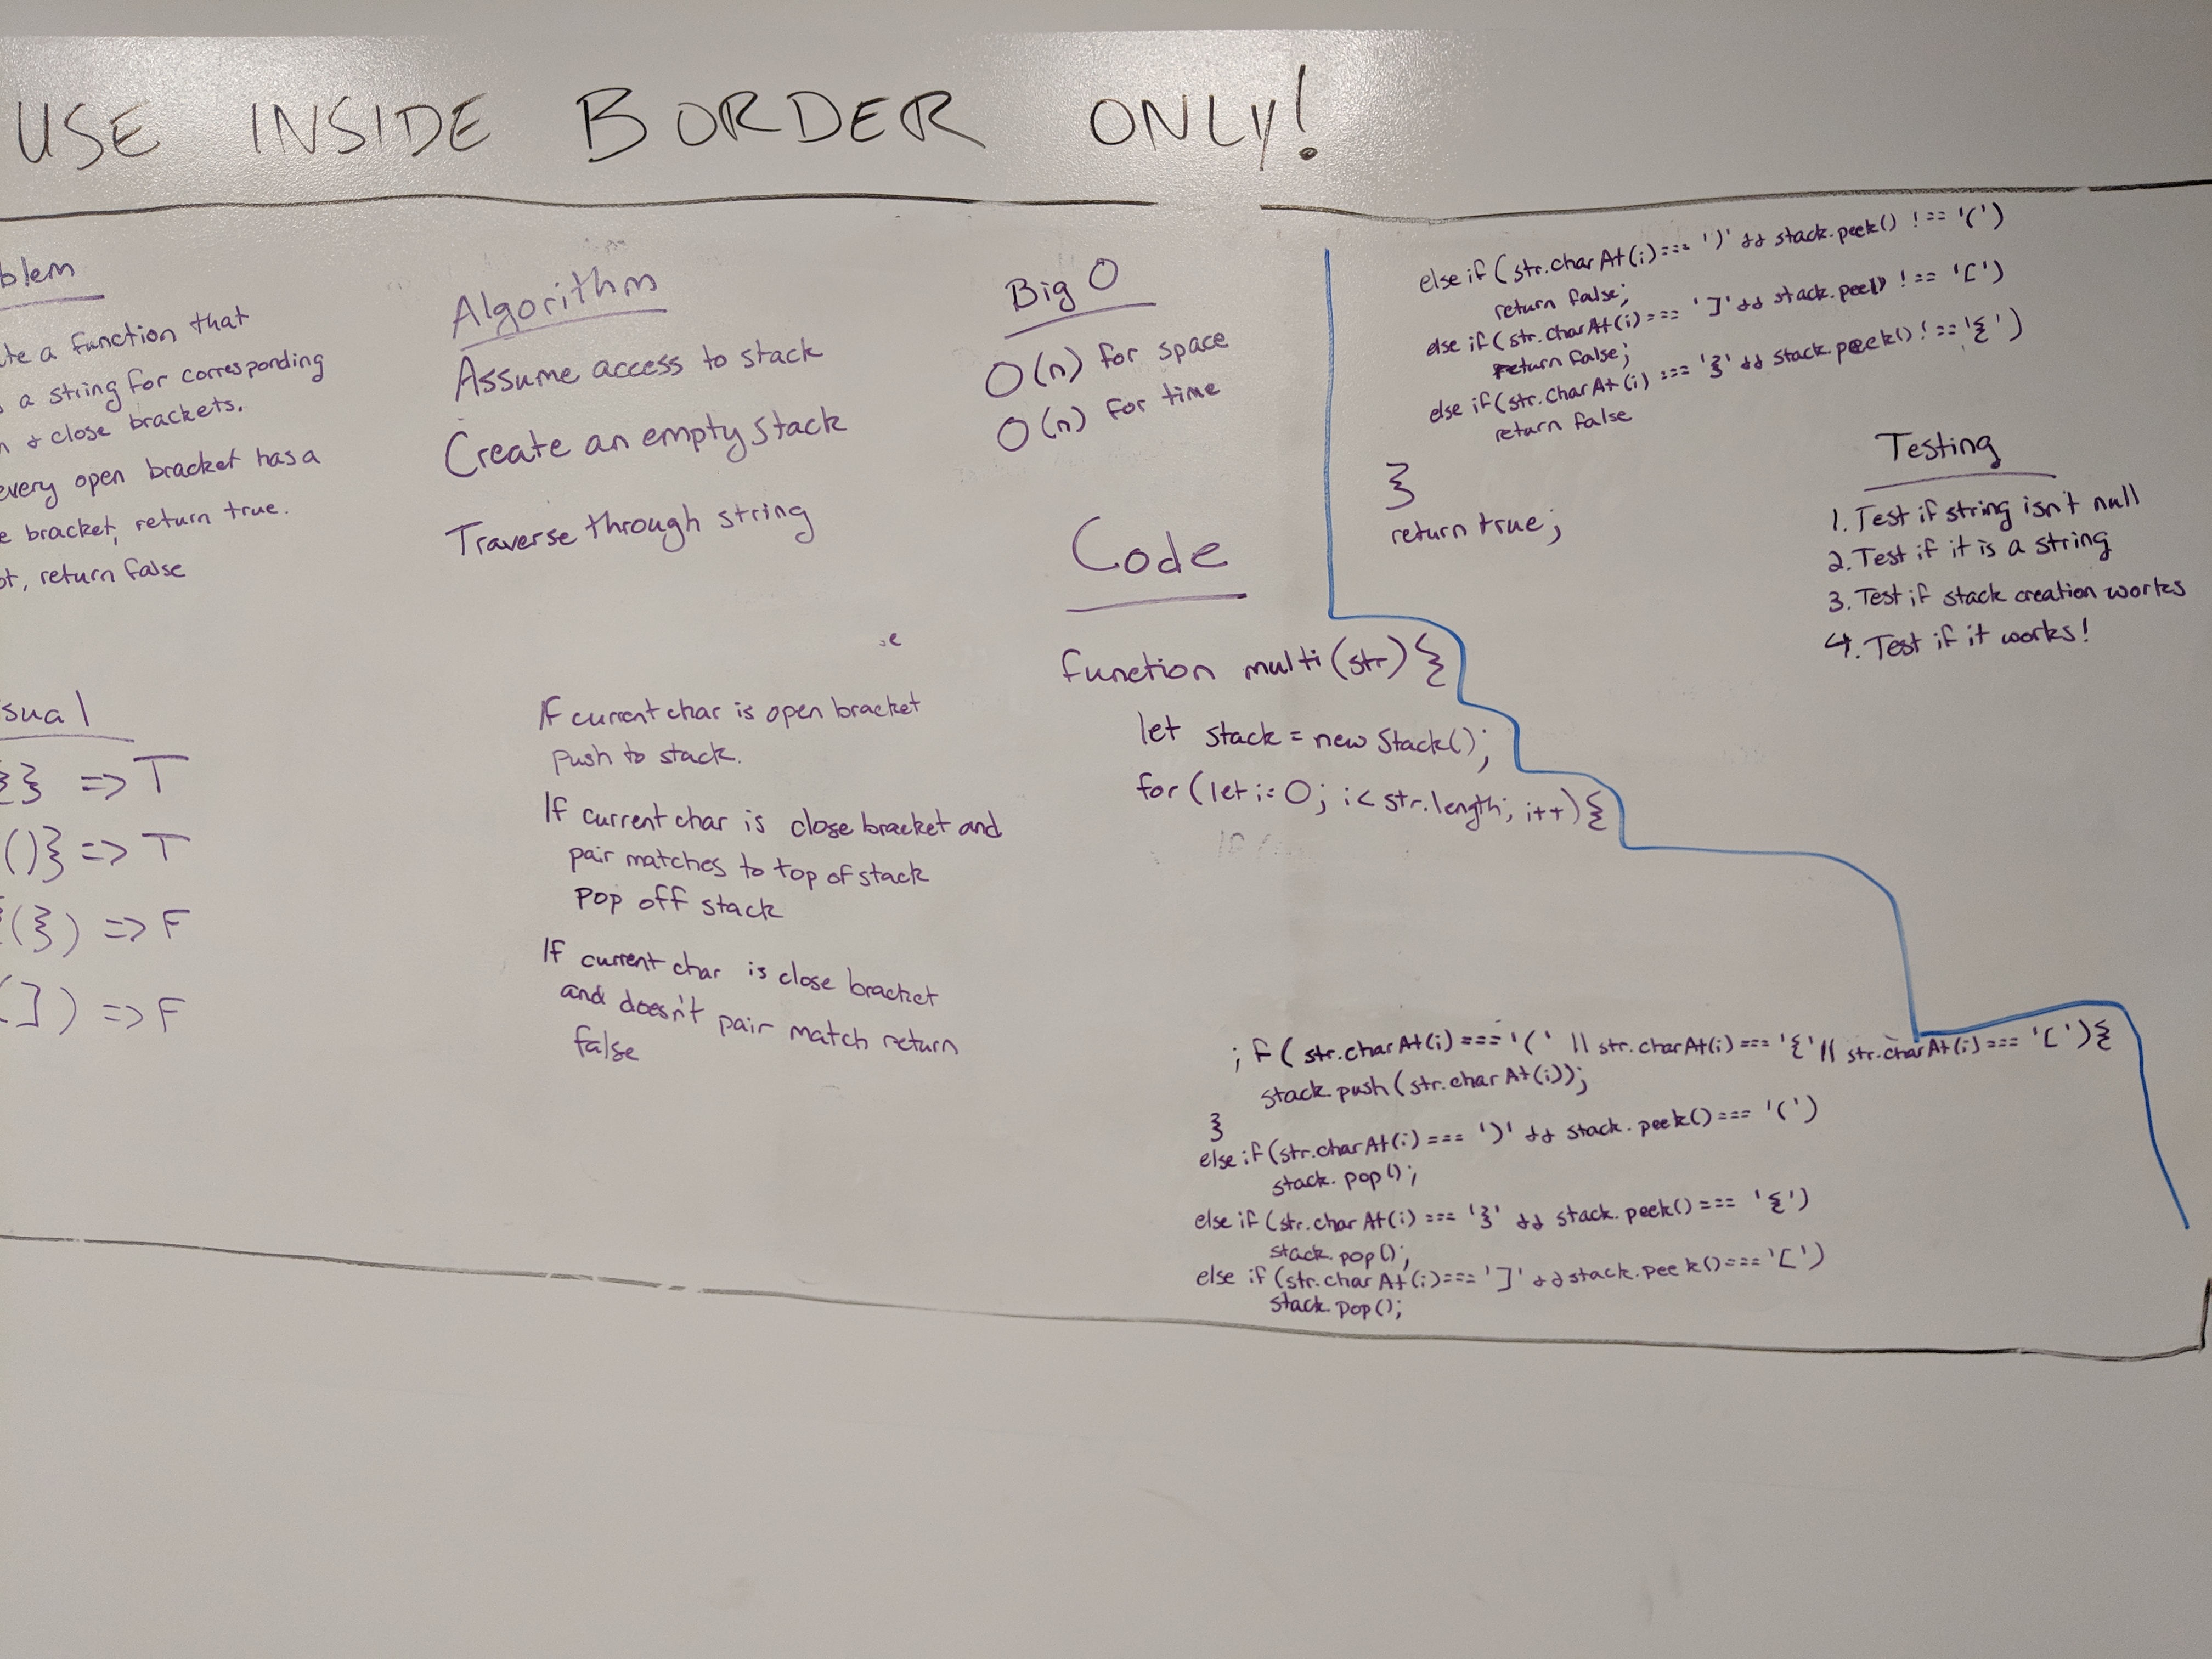 USE INSIDE BORDER ONLY!
blem
te a function that
a string for corresponding
n & close brackets.
every open bracket has a
e bracket, return true.
ot, return false
sual
{} => T
()} => T
(}) => F
(]) => F
Algorithm
Assume access to stack
Create an empty stack
Traverse through string
If current char is open bracket
push to stack.
If current char is close bracket and
pair matches to top of stack
pop off stack
If current char is close bracket
and doesn't pair match return
false
Big O
O(n) for space
O(n) for time
Code
function multi(str){
let stack = new Stack();
for (let i=0; i< str.length; i++){
if( str.charAt(i) === '(' || str.charAt(i) === '{' || str.charAt(i) === '['){
stack.push(str.charAt(i));
}
else if(str.charAt(i) === ')' && stack.peek() === '(')
stack.pop();
else if (str.charAt(i) === '}' && stack.peek() === '{')
stack.pop();
else if (str.charAt(i) === ']' && stack.peek() === '[')
stack.pop();
else if (str.charAt(i) === ')' && stack.peek() !== '(')
return false;
else if (str.charAt(i) === ']' && stack.peek() !== '[')
return false;
else if (str.charAt(i) === '}' && stack.peek() !== '{')
return false
}
return true;
Testing
1. Test if string isn't null
2. Test if it is a string
3. Test if stack creation works
4. Test if it works!